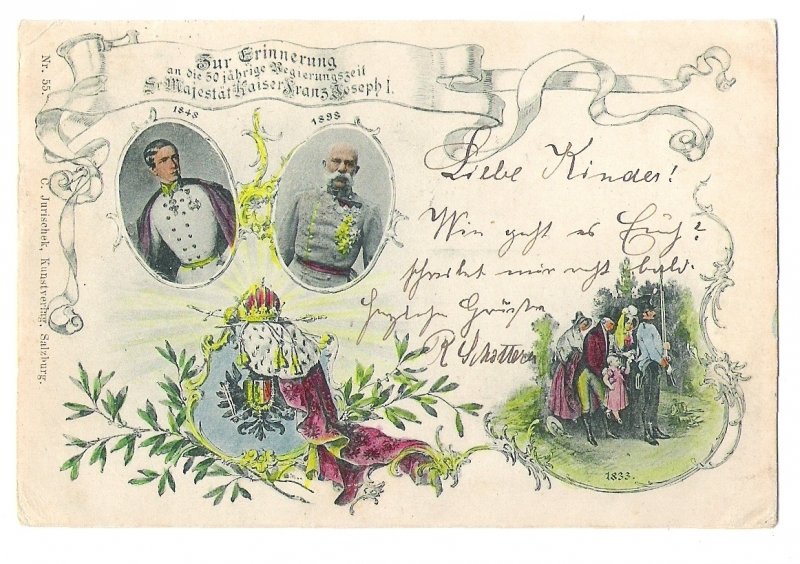 Zur Erinnerung
an die 50 jährige Regierungszeit
Sr Majestät Kaiser Franz Joseph I.
1848
1898
Liebe Kinder!
Wie geht es Euch?
schreibet mir recht bald.
herzliche Grüsse
R
1833.
Nr. 55.
C. Jurischek, Kunstverlag, Salzburg.